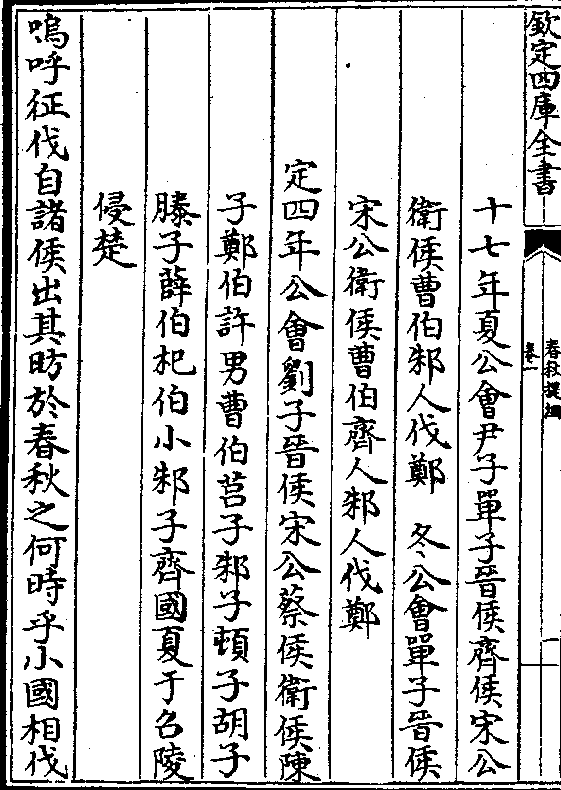 欽定四庫全書
春秋提綱
卷一
十七年夏公會尹子單子晉侯齊侯宋公
衛侯曹伯邾人伐鄭　冬公會單子晉侯
宋公衛侯曹伯齊人邾人伐鄭
定四年公會劉子晉侯宋公蔡侯衛侯陳
子鄭伯許男曹伯莒子邾子頓子胡子
滕子薛伯杞伯小邾子齊國夏于召陵
侵楚
嗚呼征伐自諸侯出其昉於春秋之何時乎小國相伐